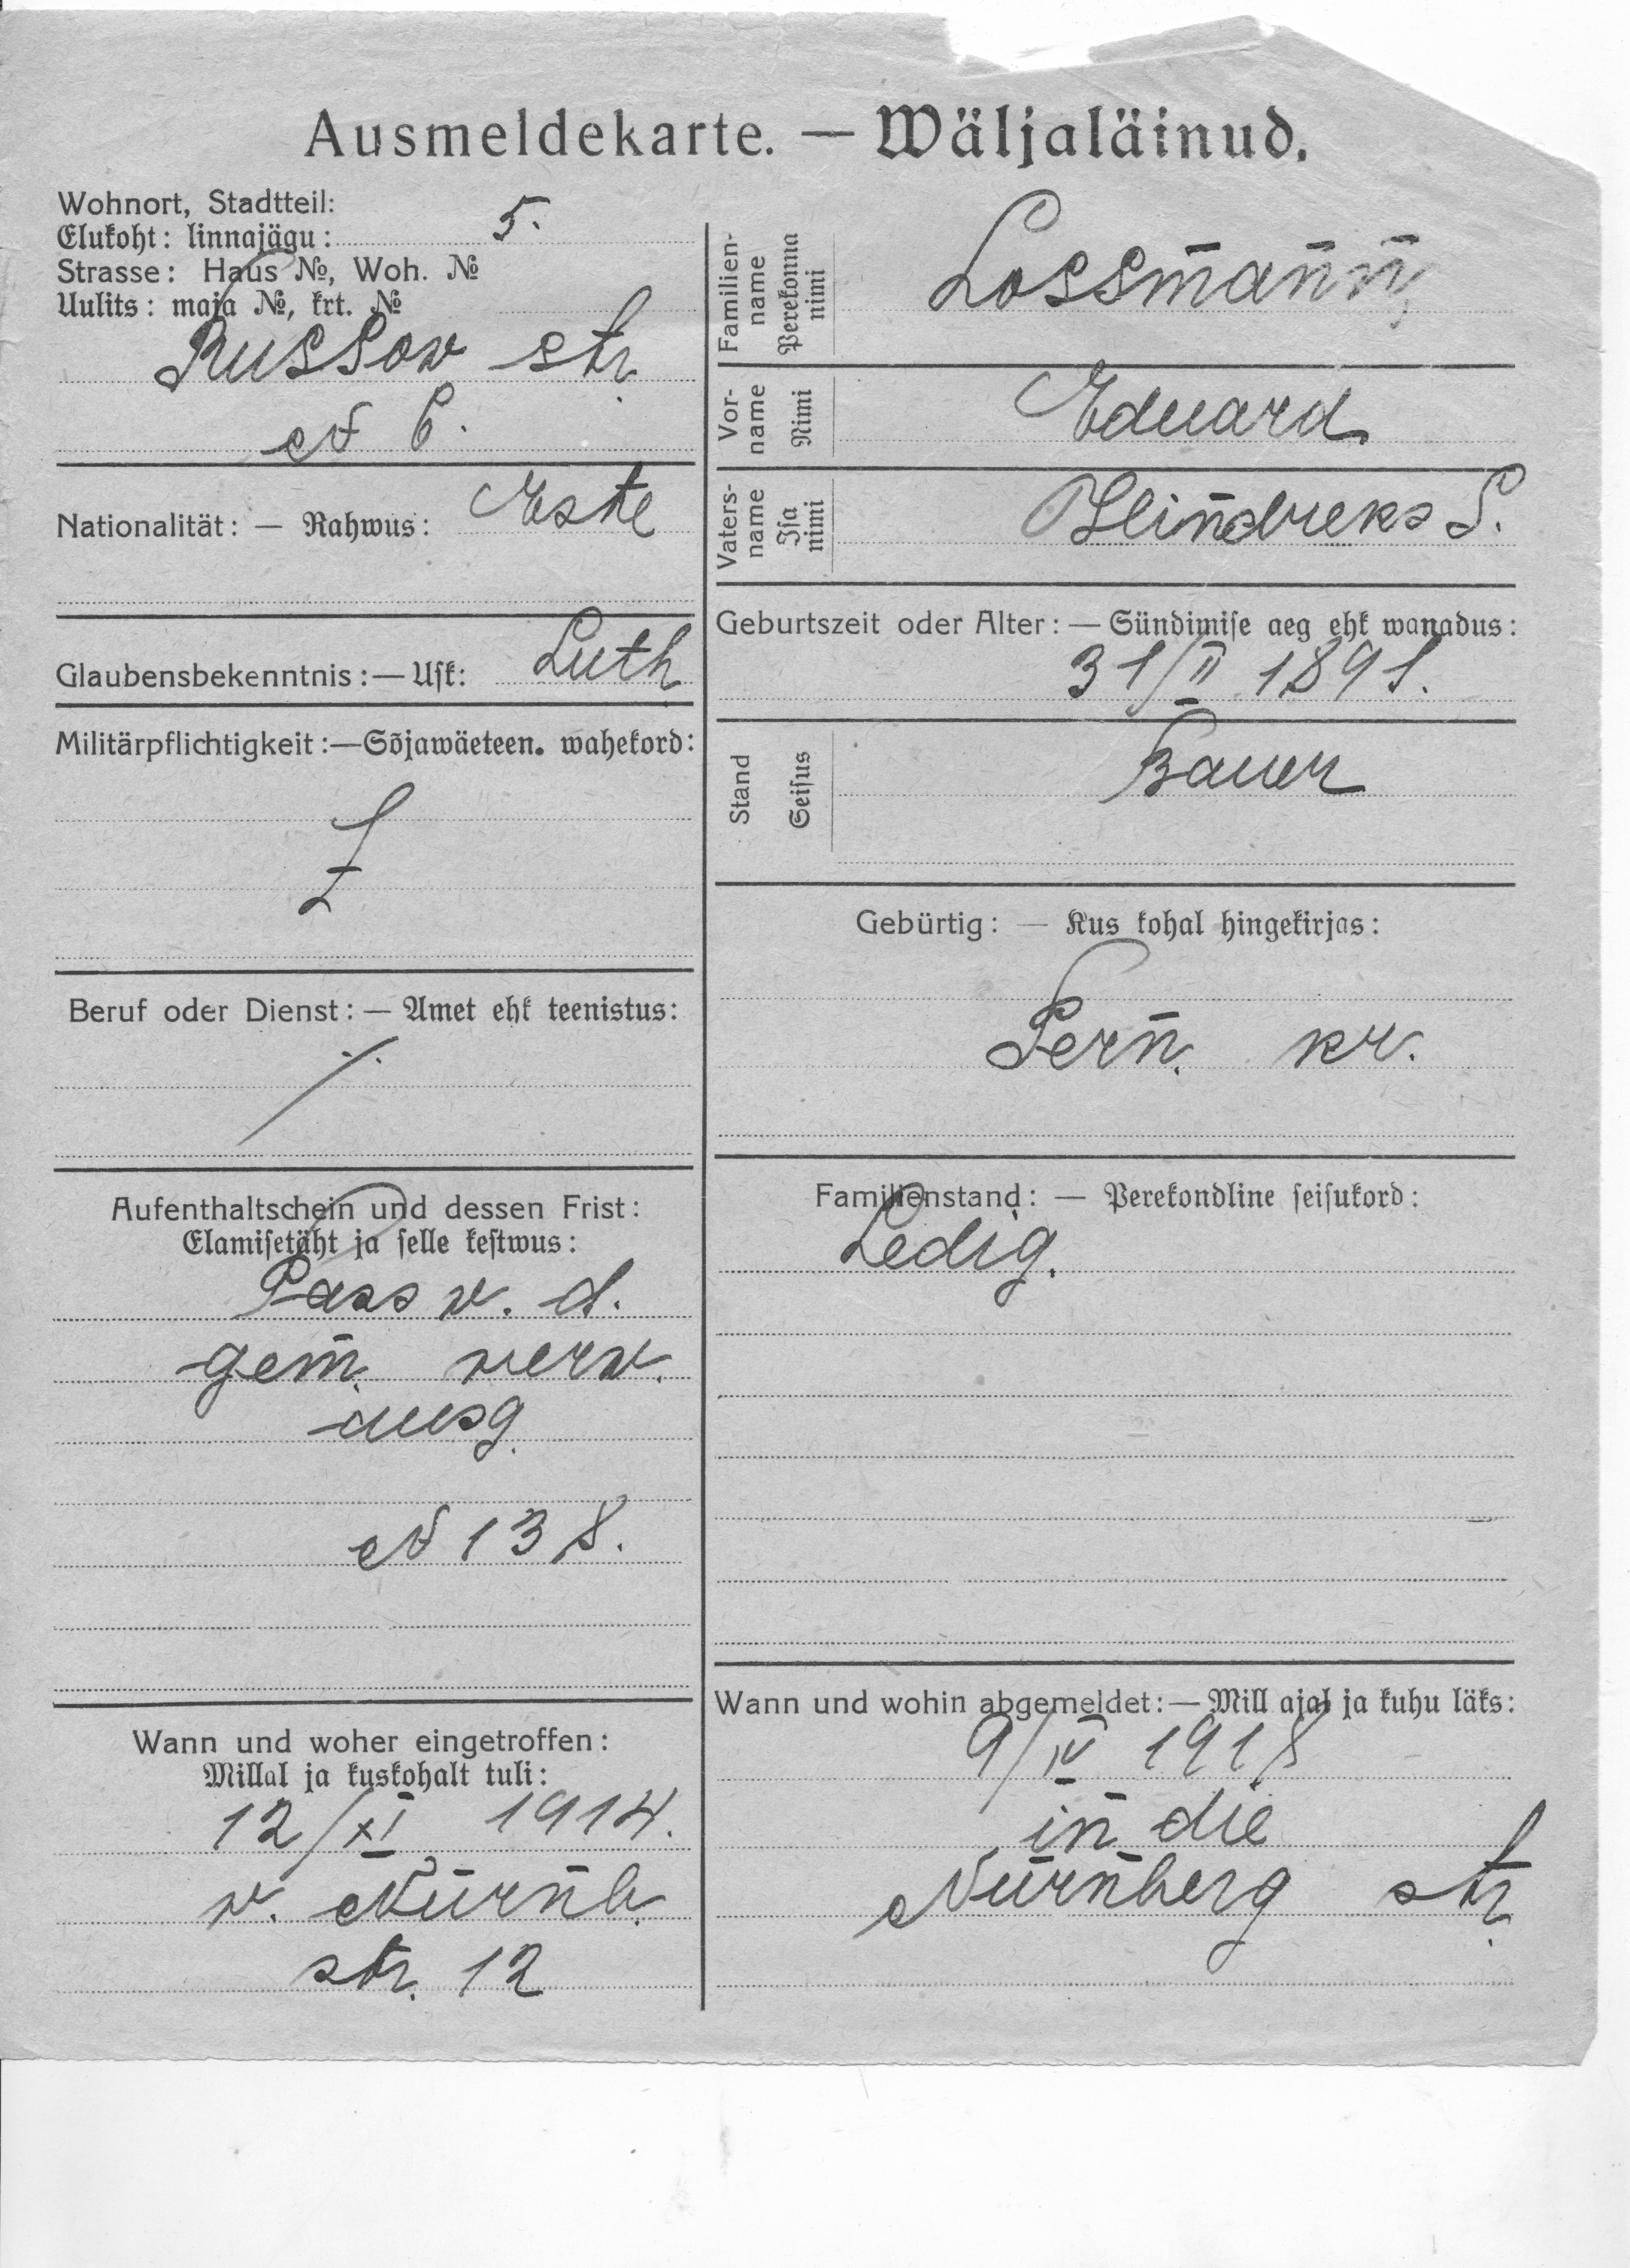 Ausmeldekarte. — Wäljaläinud.
Wohnort, Stadtteil:
Elukoht: linnajägu: 5.
Strasse: Haus №, Woh. №
Uulits: maja №, krt. №
Russow str.
№ 6.
Nationalität: — Rahwus: Este
Glaubensbekenntnis: — Usk: Luth
Militärpflichtigkeit: — Sõjawäeteen. wahekord:
Beruf oder Dienst: — Amet ehk teenistus:
Aufenthaltschein und dessen Frist:
Elamisetäht ja selle kestwus:
Pass v. d.
gem. verv.
ausg.
№ 138.
Wann und woher eingetroffen:
Millal ja kuskohalt tuli:
12/XI 1914.
v. Nürnb.
str. 12
Familien-
name
Perekonna
nimi
Lossmann,
Vor-
name
Nimi
Eduard
Vaters-
name
Isa
nimi
Hindreks S.
Geburtszeit oder Alter: — Sündimise aeg ehk wanadus:
31/II 1891.
Stand
Seisus
Bauer
Gebürtig: — Kus kohal hingekirjas:
Pern. kr.
Familienstand: — Perekondline seisukord:
Ledig.
Wann und wohin abgemeldet: — Mill ajal ja kuhu läks:
9/IV 1918
in die
Nürnberg str.